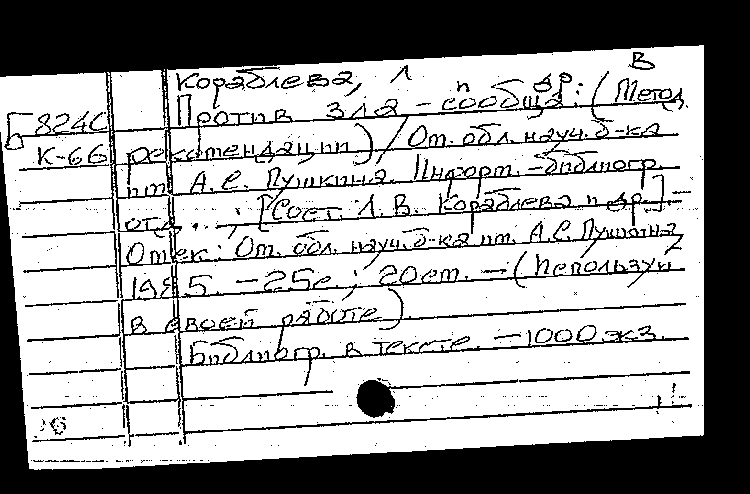 Кораблева, Л В
Против зла - сообща: (Метод.
Б 824С
К-66 рекомендации) / Ом. обл. науч. б-ка
им. А.С. Пушкина. Информ.-библиогр.
отд. ...; [Сост. Л.В. Кораблева и др.] -
Омск: Ом. обл. науч. б-ка им. А.С. Пушкина,
1985. - 25с.; 20см. - (Используй
в своей работе).
Библиогр. в тексте. - 1000 экз.